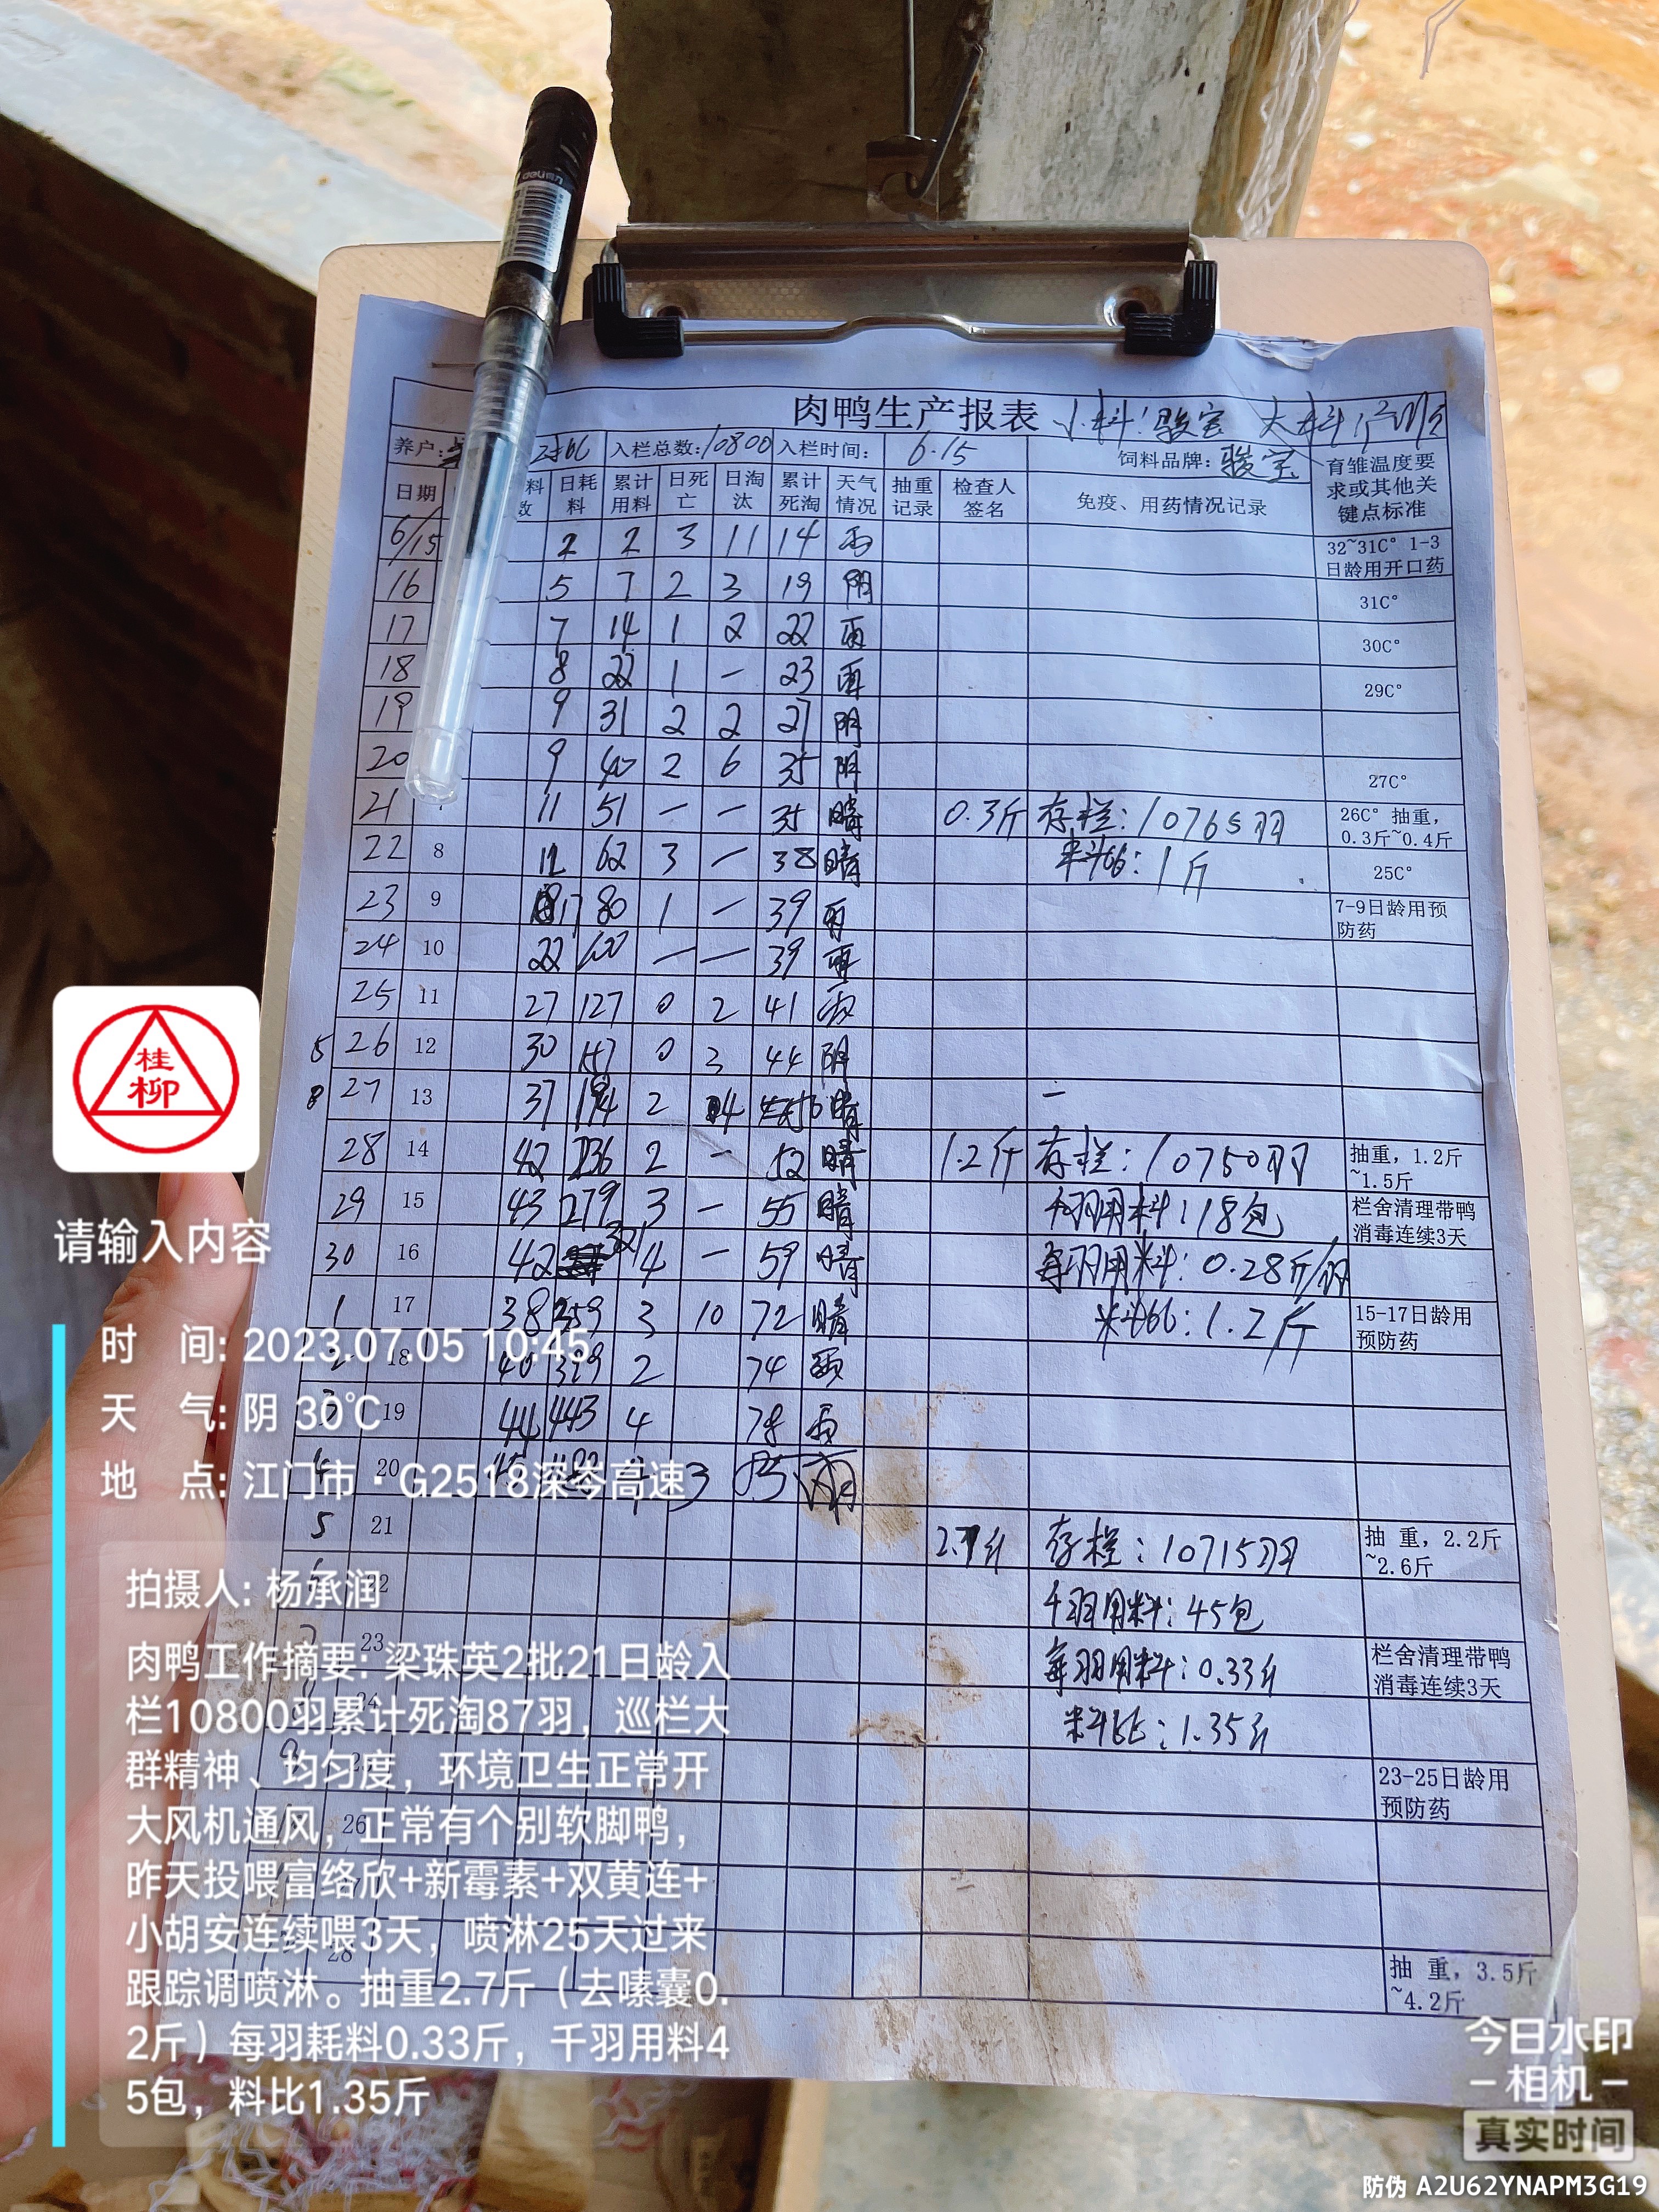 deli得力
肉鸭生产报表 小料:骏宝 大料:
养户: 2批 入栏总数:10800 入栏时间: 6.15 饲料品牌:骏宝 育雏温度要求或其他关键点标准
日期 料数 日耗料 累计用料 日死亡 日淘汰 累计死淘 天气情况 抽重记录 检查人签名 免疫、用药情况记录
6/15 2 2 3 11 14 雨 32~31C° 1-3日龄用开口药
16 5 7 2 3 19 阴 31C°
17 7 14 1 2 22 雨 30C°
18 8 22 1 — 23 雨 29C°
19 9 31 2 2 27 阴
20 9 40 2 6 35 阴 27C°
21 11 51 — — 35 晴 0.3斤 存栏:10765羽 26C° 抽重,0.3斤~0.4斤
22 8 12 62 3 — 38 晴 料比:1斤 25C°
23 9 80 1 — 39 雨 7-9日龄用预防药
24 10 22 100 — — 39 雨
25 11 27 127 0 2 41 雨
5 26 12 30 157 0 3 44 阴
8 27 13 37 194 2 4 晴 —
28 14 42 236 2 — 52 晴 1.2斤 存栏:10750羽 抽重,1.2斤~1.5斤
29 15 43 279 3 — 55 晴 千羽用料:18包 栏舍清理带鸭消毒连续3天
30 16 42 321 4 — 59 晴 每羽用料:0.28斤/羽
1 17 38 359 3 10 72 晴 料比:1.2斤 15-17日龄用预防药
2 18 40 399 2 74 雨
3 19 44 443 4 78 雨
4 20 3 85 雨
5 21 2.7斤 存栏:10715羽 抽 重,2.2斤~2.6斤
6 22 千羽用料:45包
7 23 每羽用料:0.33斤 栏舍清理带鸭消毒连续3天
24 料比:1.35斤
9 23-25日龄用预防药
26
28 抽 重,3.5斤~4.2斤
桂柳
请输入内容
时 间: 2023.07.05 10:45
天 气: 阴 30℃
地 点: 江门市·G2518深岑高速
拍摄人: 杨承润
肉鸭工作摘要: 梁珠英2批21日龄入
栏10800羽累计死淘87羽，巡栏大
群精神、均匀度，环境卫生正常开
大风机通风，正常有个别软脚鸭，
昨天投喂富络欣+新霉素+双黄连+
小胡安连续喂3天，喷淋25天过来
跟踪调喷淋。抽重2.7斤（去嗉囊0.
2斤）每羽耗料0.33斤，千羽用料4
5包，料比1.35斤
今日水印
－相机－
真实时间
防伪 A2U62YNAPM3G19